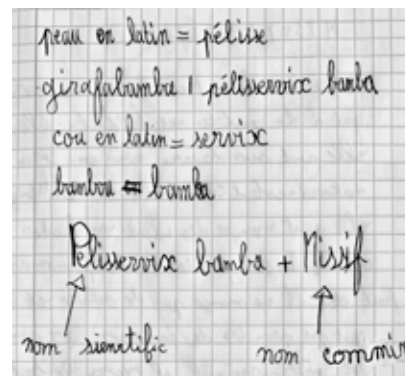 peau en latin = pélisse
girafabamba | pélisservix bamba
cou en latin = servix
bambou = bamba
Pelisservix bamba + Missif
nom sientific nom commin